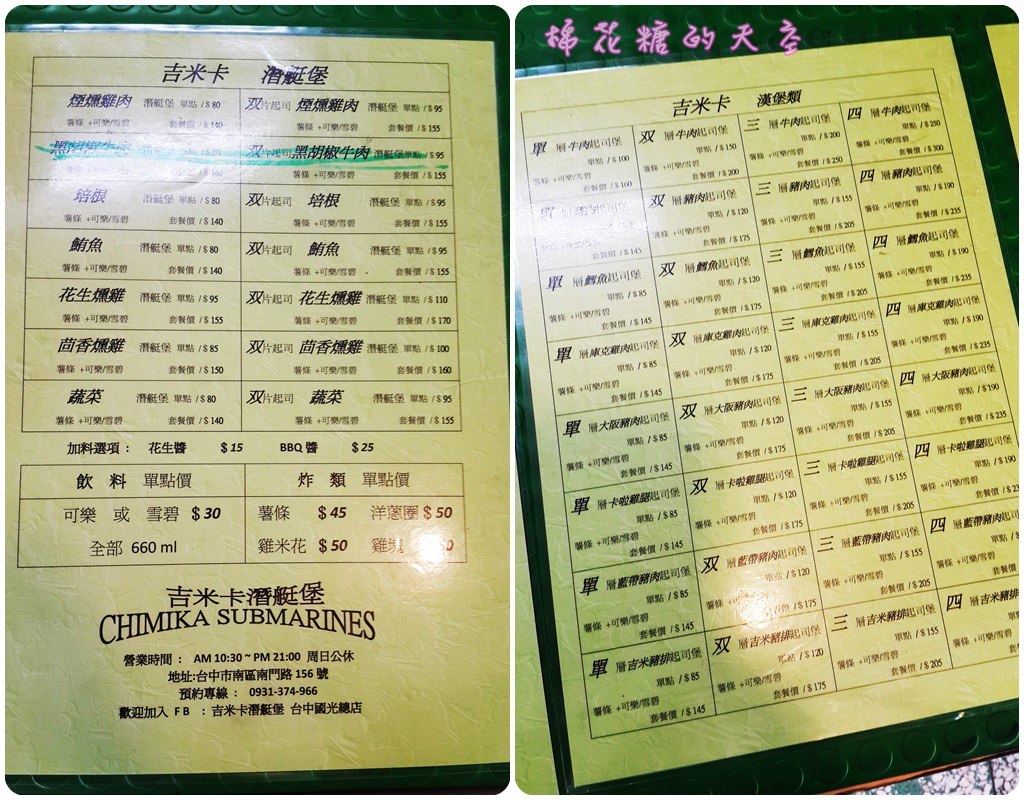 吉米卡 潛艇堡
煙燻雞肉 潛艇堡 單點 / $ 80
薯條 +可樂/雪碧 套餐價 / $ 140
双片起司 煙燻雞肉 潛艇堡 單點 / $ 95
薯條 +可樂/雪碧 套餐價 / $ 155
黑胡椒牛肉
双片起司 黑胡椒牛肉 潛艇堡 單點 / $ 95
薯條 +可樂/雪碧 套餐價 / $ 155
培根 潛艇堡 單點 / $ 80
薯條 +可樂/雪碧 套餐價 / $ 140
双片起司 培根 潛艇堡 單點 / $ 95
薯條 +可樂/雪碧 套餐價 / $ 155
鮪魚 潛艇堡 單點 / $ 80
薯條 +可樂/雪碧 套餐價 / $ 140
双片起司 鮪魚 潛艇堡 單點 / $ 95
薯條 +可樂/雪碧 套餐價 / $ 155
花生燻雞 潛艇堡 單點 / $ 95
薯條 +可樂/雪碧 套餐價 / $ 155
双片起司 花生燻雞 潛艇堡 單點 / $ 110
薯條 +可樂/雪碧 套餐價 / $ 170
茴香燻雞 潛艇堡 單點 / $ 85
薯條 +可樂/雪碧 套餐價 / $ 150
双片起司 茴香燻雞 潛艇堡 單點 / $ 100
薯條 +可樂/雪碧 套餐價 / $ 160
蔬菜 潛艇堡 單點 / $ 80
薯條 +可樂/雪碧 套餐價 / $ 140
双片起司 蔬菜 潛艇堡 單點 / $ 95
薯條 +可樂/雪碧 套餐價 / $ 155
加料選項 : 花生醬 $ 15 BBQ 醬 $ 25
飲 料 單點價
可樂 或 雪碧 $ 30
全部 660 ml
炸 類 單點價
薯條 $ 45 洋蔥圈 $ 50
雞米花 $ 50 雞塊
吉米卡潛艇堡
CHIMIKA SUBMARINES
營業時間 : AM 10:30 ~ PM 21:00 周日公休
地址:台中市南區南門路 156 號
預約專線 : 0931-374-966
歡迎加入 F B : 吉米卡潛艇堡 台中國光總店
棉花糖的天空
吉米卡 漢堡類
單 層牛肉起司堡
單點 / $ 100
薯條 +可樂/雪碧
套餐價 / $ 160
双 層牛肉起司堡
單點 / $ 150
薯條 +可樂/雪碧
套餐價 / $ 200
三 層牛肉起司堡
單點 / $ 200
薯條 +可樂/雪碧
套餐價 / $ 250
四 層牛肉起司堡
單點 / $ 250
薯條 +可樂/雪碧
套餐價 / $ 300
單
套餐價 / $ 145
双 層豬肉起司堡
單點 / $ 120
薯條 +可樂/雪碧
套餐價 / $ 175
三 層豬肉起司堡
單點 / $ 155
薯條 +可樂/雪碧
套餐價 / $ 205
四 層豬肉起司堡
單點 / $ 190
薯條 +可樂/雪碧
套餐價 / $ 235
單 層鱈魚起司堡
單點 / $ 85
薯條 +可樂/雪碧
套餐價 / $ 145
双 層鱈魚起司堡
單點 / $ 120
薯條 +可樂/雪碧
套餐價 / $ 175
三 層鱈魚起司堡
單點 / $ 155
薯條 +可樂/雪碧
套餐價 / $ 205
四 層鱈魚起司堡
單點 / $ 190
薯條 +可樂/雪碧
套餐價 / $ 235
單 層庫克雞肉起司堡
單點 / $ 85
薯條 +可樂/雪碧
套餐價 / $ 145
双 層庫克雞肉起司堡
單點 / $ 120
薯條 +可樂/雪碧
套餐價 / $ 175
三 層庫克雞肉起司堡
單點 / $ 155
薯條 +可樂/雪碧
套餐價 / $ 205
四 層庫克雞肉起司堡
單點 / $ 190
薯條 +可樂/雪碧
套餐價 / $ 235
單 層大阪豬肉起司堡
單點 / $ 85
薯條 +可樂/雪碧
套餐價 / $ 145
双 層大阪豬肉起司堡
單點 / $ 120
薯條 +可樂/雪碧
套餐價 / $ 175
三 層大阪豬肉起司堡
單點 / $ 155
薯條 +可樂/雪碧
套餐價 / $ 205
四 層大阪豬肉起司堡
單點 / $ 190
薯條 +可樂/雪碧
套餐價 / $ 235
單 層卡啦雞腿起司堡
單點 / $ 85
薯條 +可樂/雪碧
套餐價 / $ 145
双 層卡啦雞腿起司堡
單點 / $ 120
薯條 +可樂/雪碧
套餐價 / $ 175
三 層卡啦雞腿起司堡
單點 / $ 155
薯條 +可樂/雪碧
套餐價 / $ 205
四 層卡啦雞腿起司堡
單點 / $ 190
薯條 +可樂/雪碧
套餐價
單 層藍帶豬肉起司堡
單點 / $ 85
薯條 +可樂/雪碧
套餐價 / $ 145
双 層藍帶豬肉起司堡
單點 / $ 120
薯條 +可樂/雪碧
套餐價 / $ 175
三 層藍帶豬肉起司堡
單點 / $ 155
薯條 +可樂/雪碧
套餐價 / $ 205
四 層藍帶豬肉起司
單點
薯條 +可樂/雪碧
套餐價
單 層吉米豬排起司堡
單點 / $ 85
薯條 +可樂/雪碧
套餐價 / $ 145
双 層吉米豬排起司堡
單點 / $ 120
薯條 +可樂/雪碧
套餐價 / $ 175
三 層吉米豬排起司堡
單點 / $ 155
薯條 +可樂/雪碧
套餐價 / $ 205
四 層吉米豬排
薯條 +可樂/雪碧